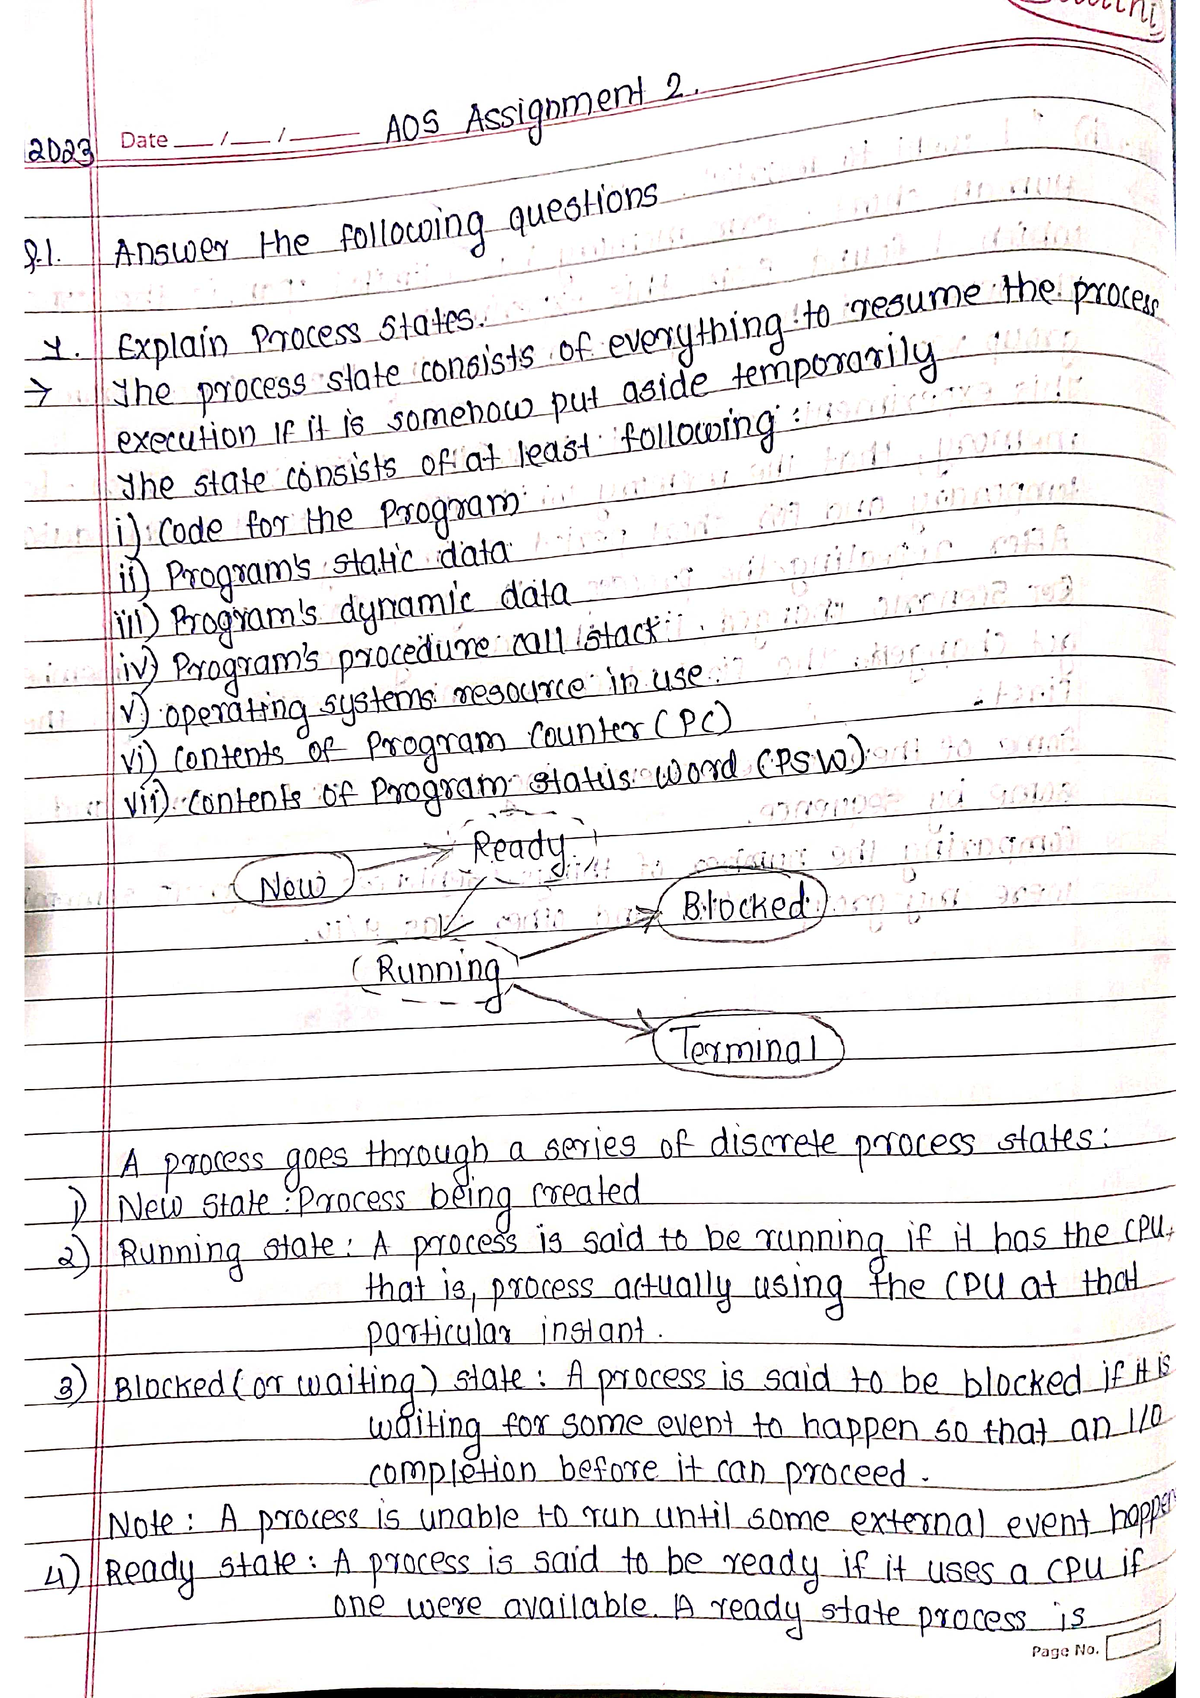 AOS Assignment 2.
2023 Date __/__/____
Q.1. Answer the following questions
1. Explain Process states.
→ The process state consists of everything to resume the process
execution if it is somehow put aside temporarily
The state consists of at least following :
i) Code for the Program
ii) Program's static data
iii) Program's dynamic data
iv) Program's procedure call stack
v) operating systems resource in use.
vi) contents of Program Counter (PC)
vii) contents of Program status word (PSW)
Ready
New
Blocked
Running
Terminal
A process goes through a series of discrete process states :
1) New state : Process being created
2) Running state : A process is said to be running if it has the CPU,
that is, process actually using the CPU at that
particular instant.
3) Blocked (or waiting) state : A process is said to be blocked if it is
waiting for some event to happen so that an I/O
completion before it can proceed.
Note : A process is unable to run until some external event happens
4) Ready state : A process is said to be ready if it uses a CPU if
one were available. A ready state process is
Page No.